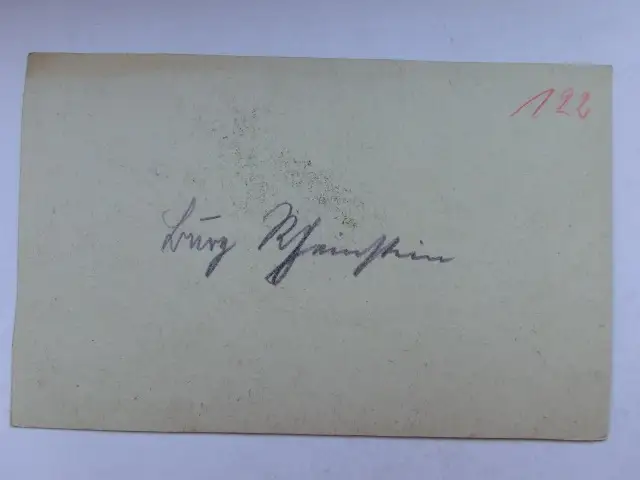 122
Burg Rheinstein